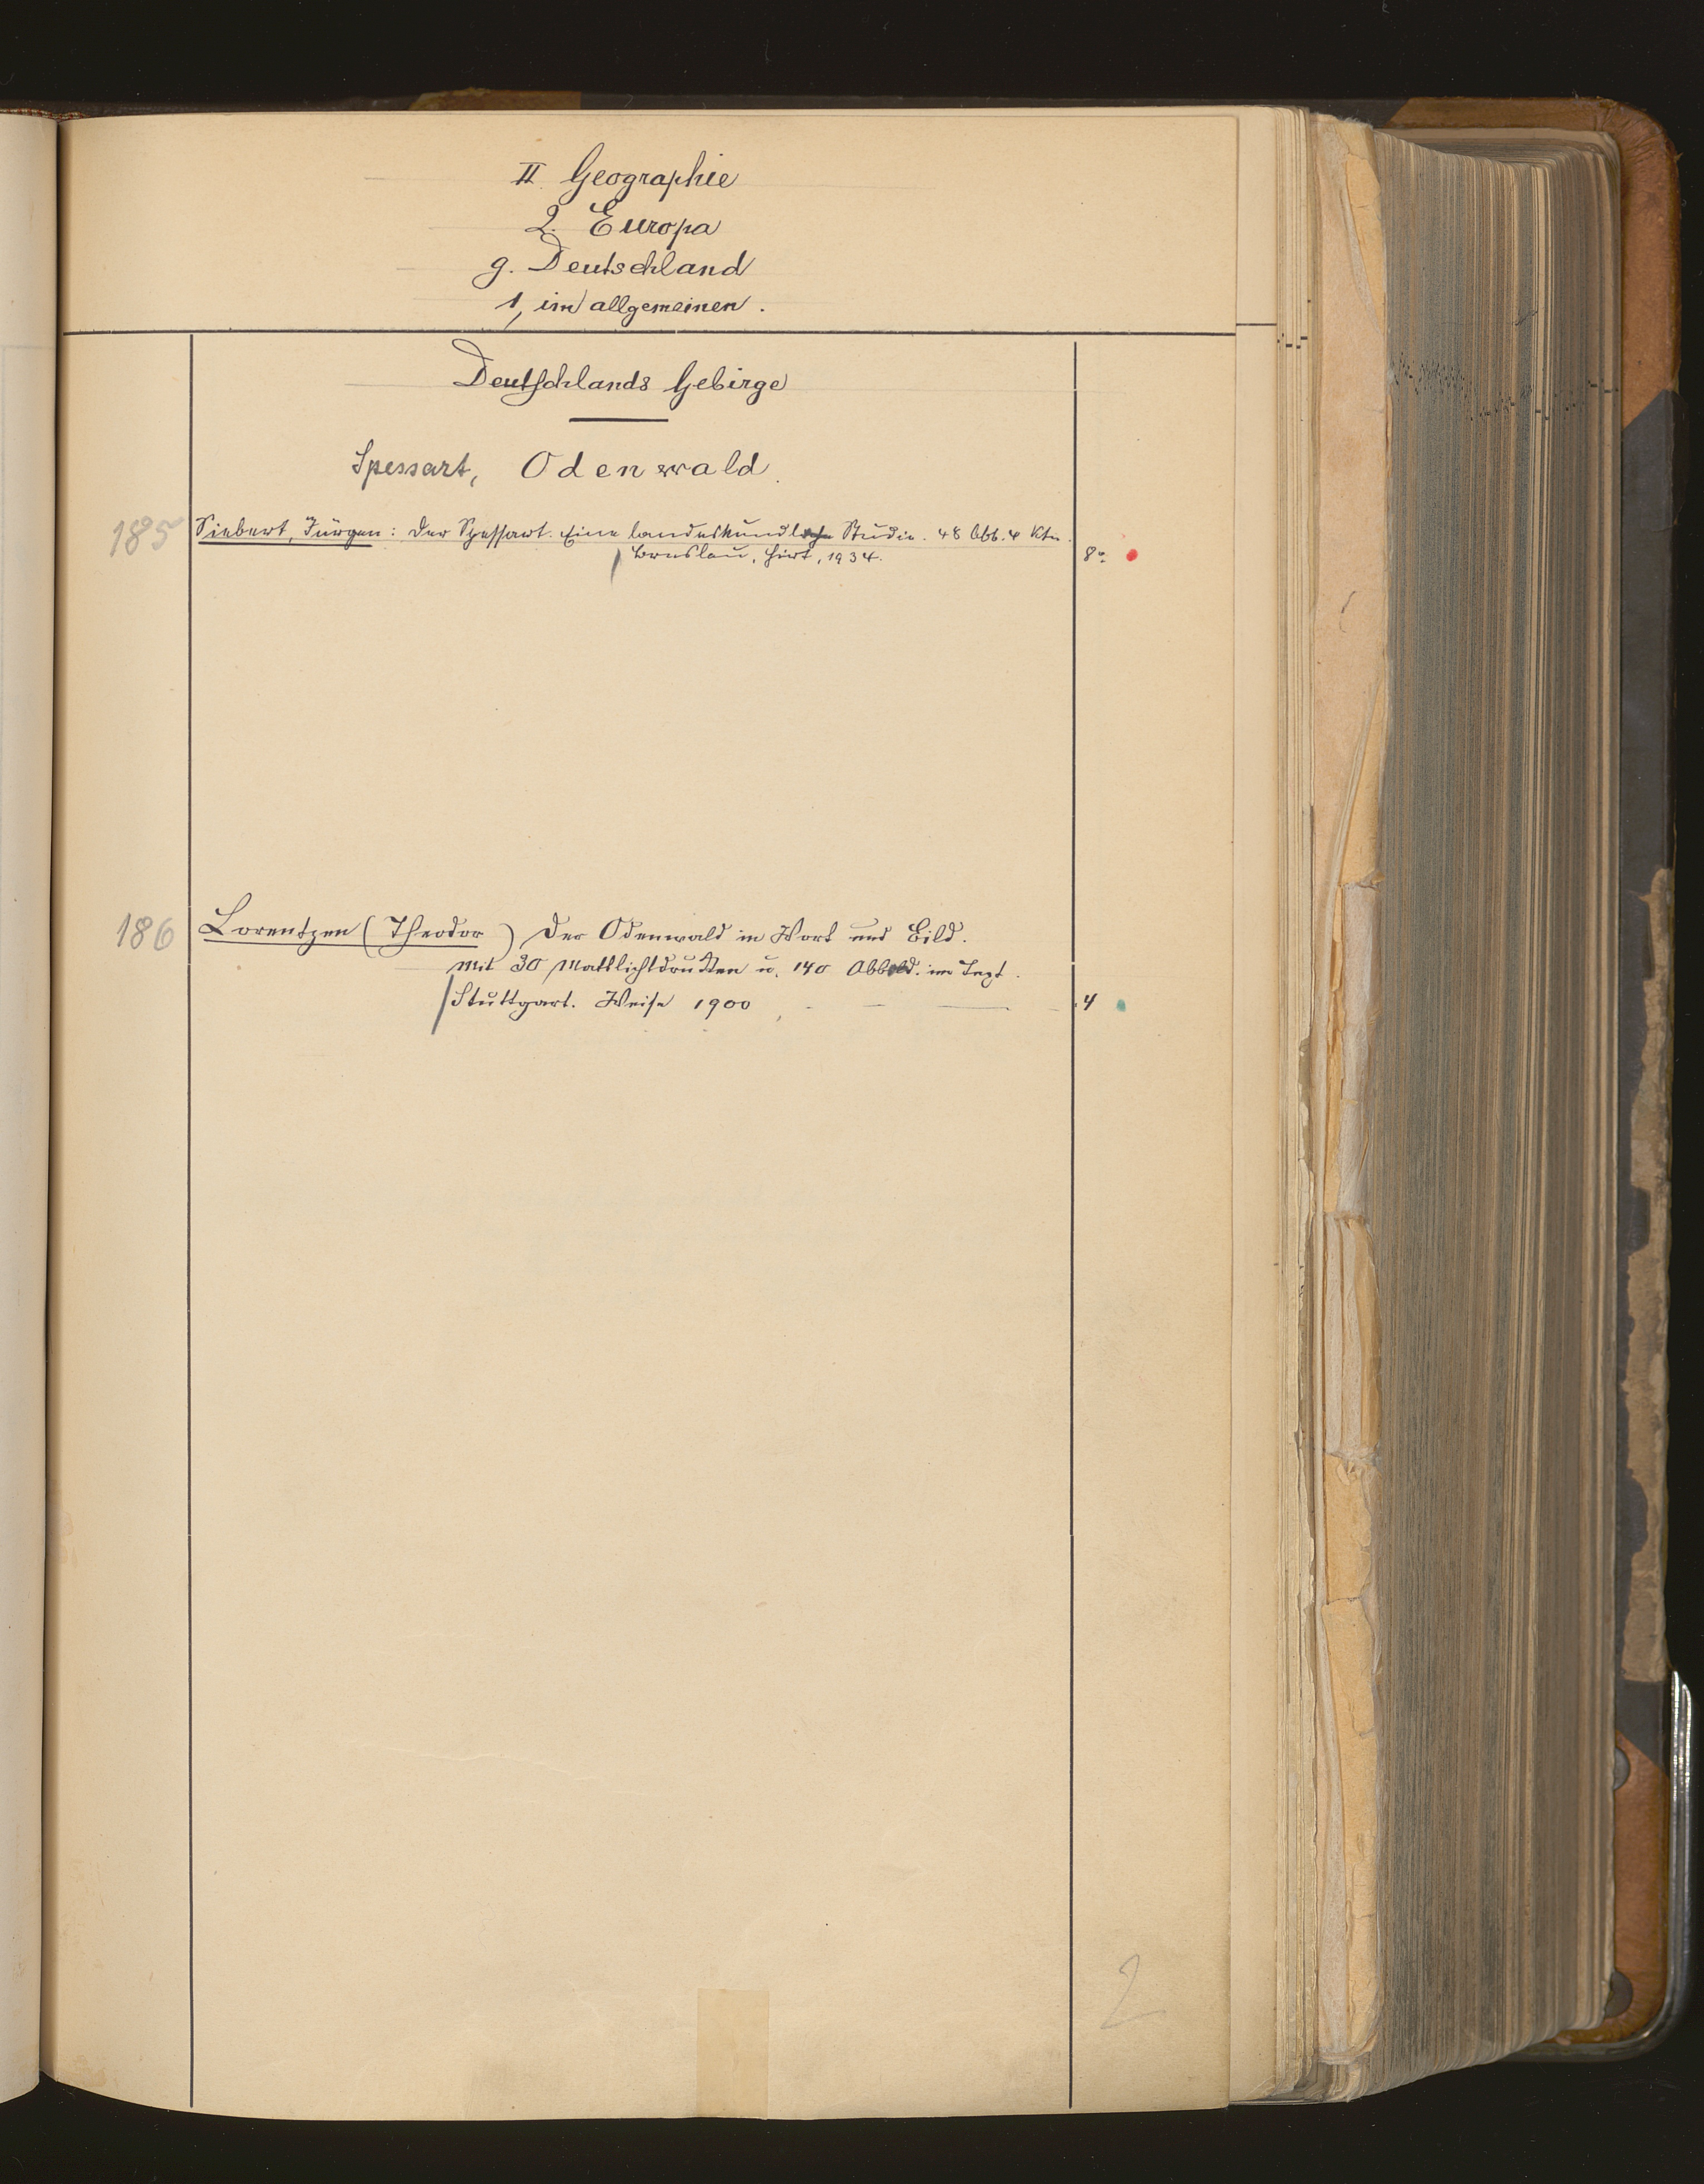 II. Geographie
2. Europa
g. Deutschland
1, im allgemeinen.
Deutschlands Gebirge
Spessart, Odenwald.
185 Siebert, Jürgen: Der Spessart. Eine landeskundliche Studie. 48 Abb. 4 Ktn.
Breslau, Hirt, 1934. 8°.
186 Lorentzen (Theodor) Der Odenwald in Wort und Bild.
Mit 30 Mattlichtdrucken u. 140 Abbild. im Text.
Stuttgart. Weise 1900 4
2